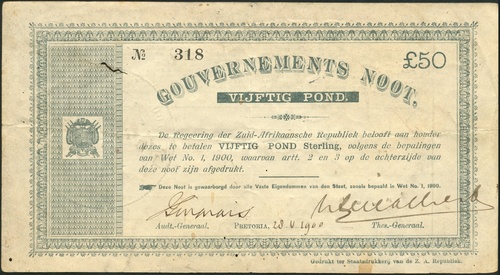 № 318
£50
GOUVERNEMENTS NOOT.
VIJFTIG POND.
De Regeering der Zuid-Afrikaansche Republiek belooft aan houder
dezes te betalen VIJFTIG POND Sterling, volgens de bepalingen
van Wet No. 1, 1900, waarvan artt. 2 en 3 op de achterzijde van
deze noot zijn afgedrukt.
Deze Noot is gewaarborgd door alle Vaste Eigendommen van den Staat, zooals bepaald in Wet No. 1, 1900.
Audt.-Generaal. PRETORIA, 28 V 1900 Thes.-Generaal.
Gedrukt ter Staatsdrukkerij van de Z. A. Republiek.